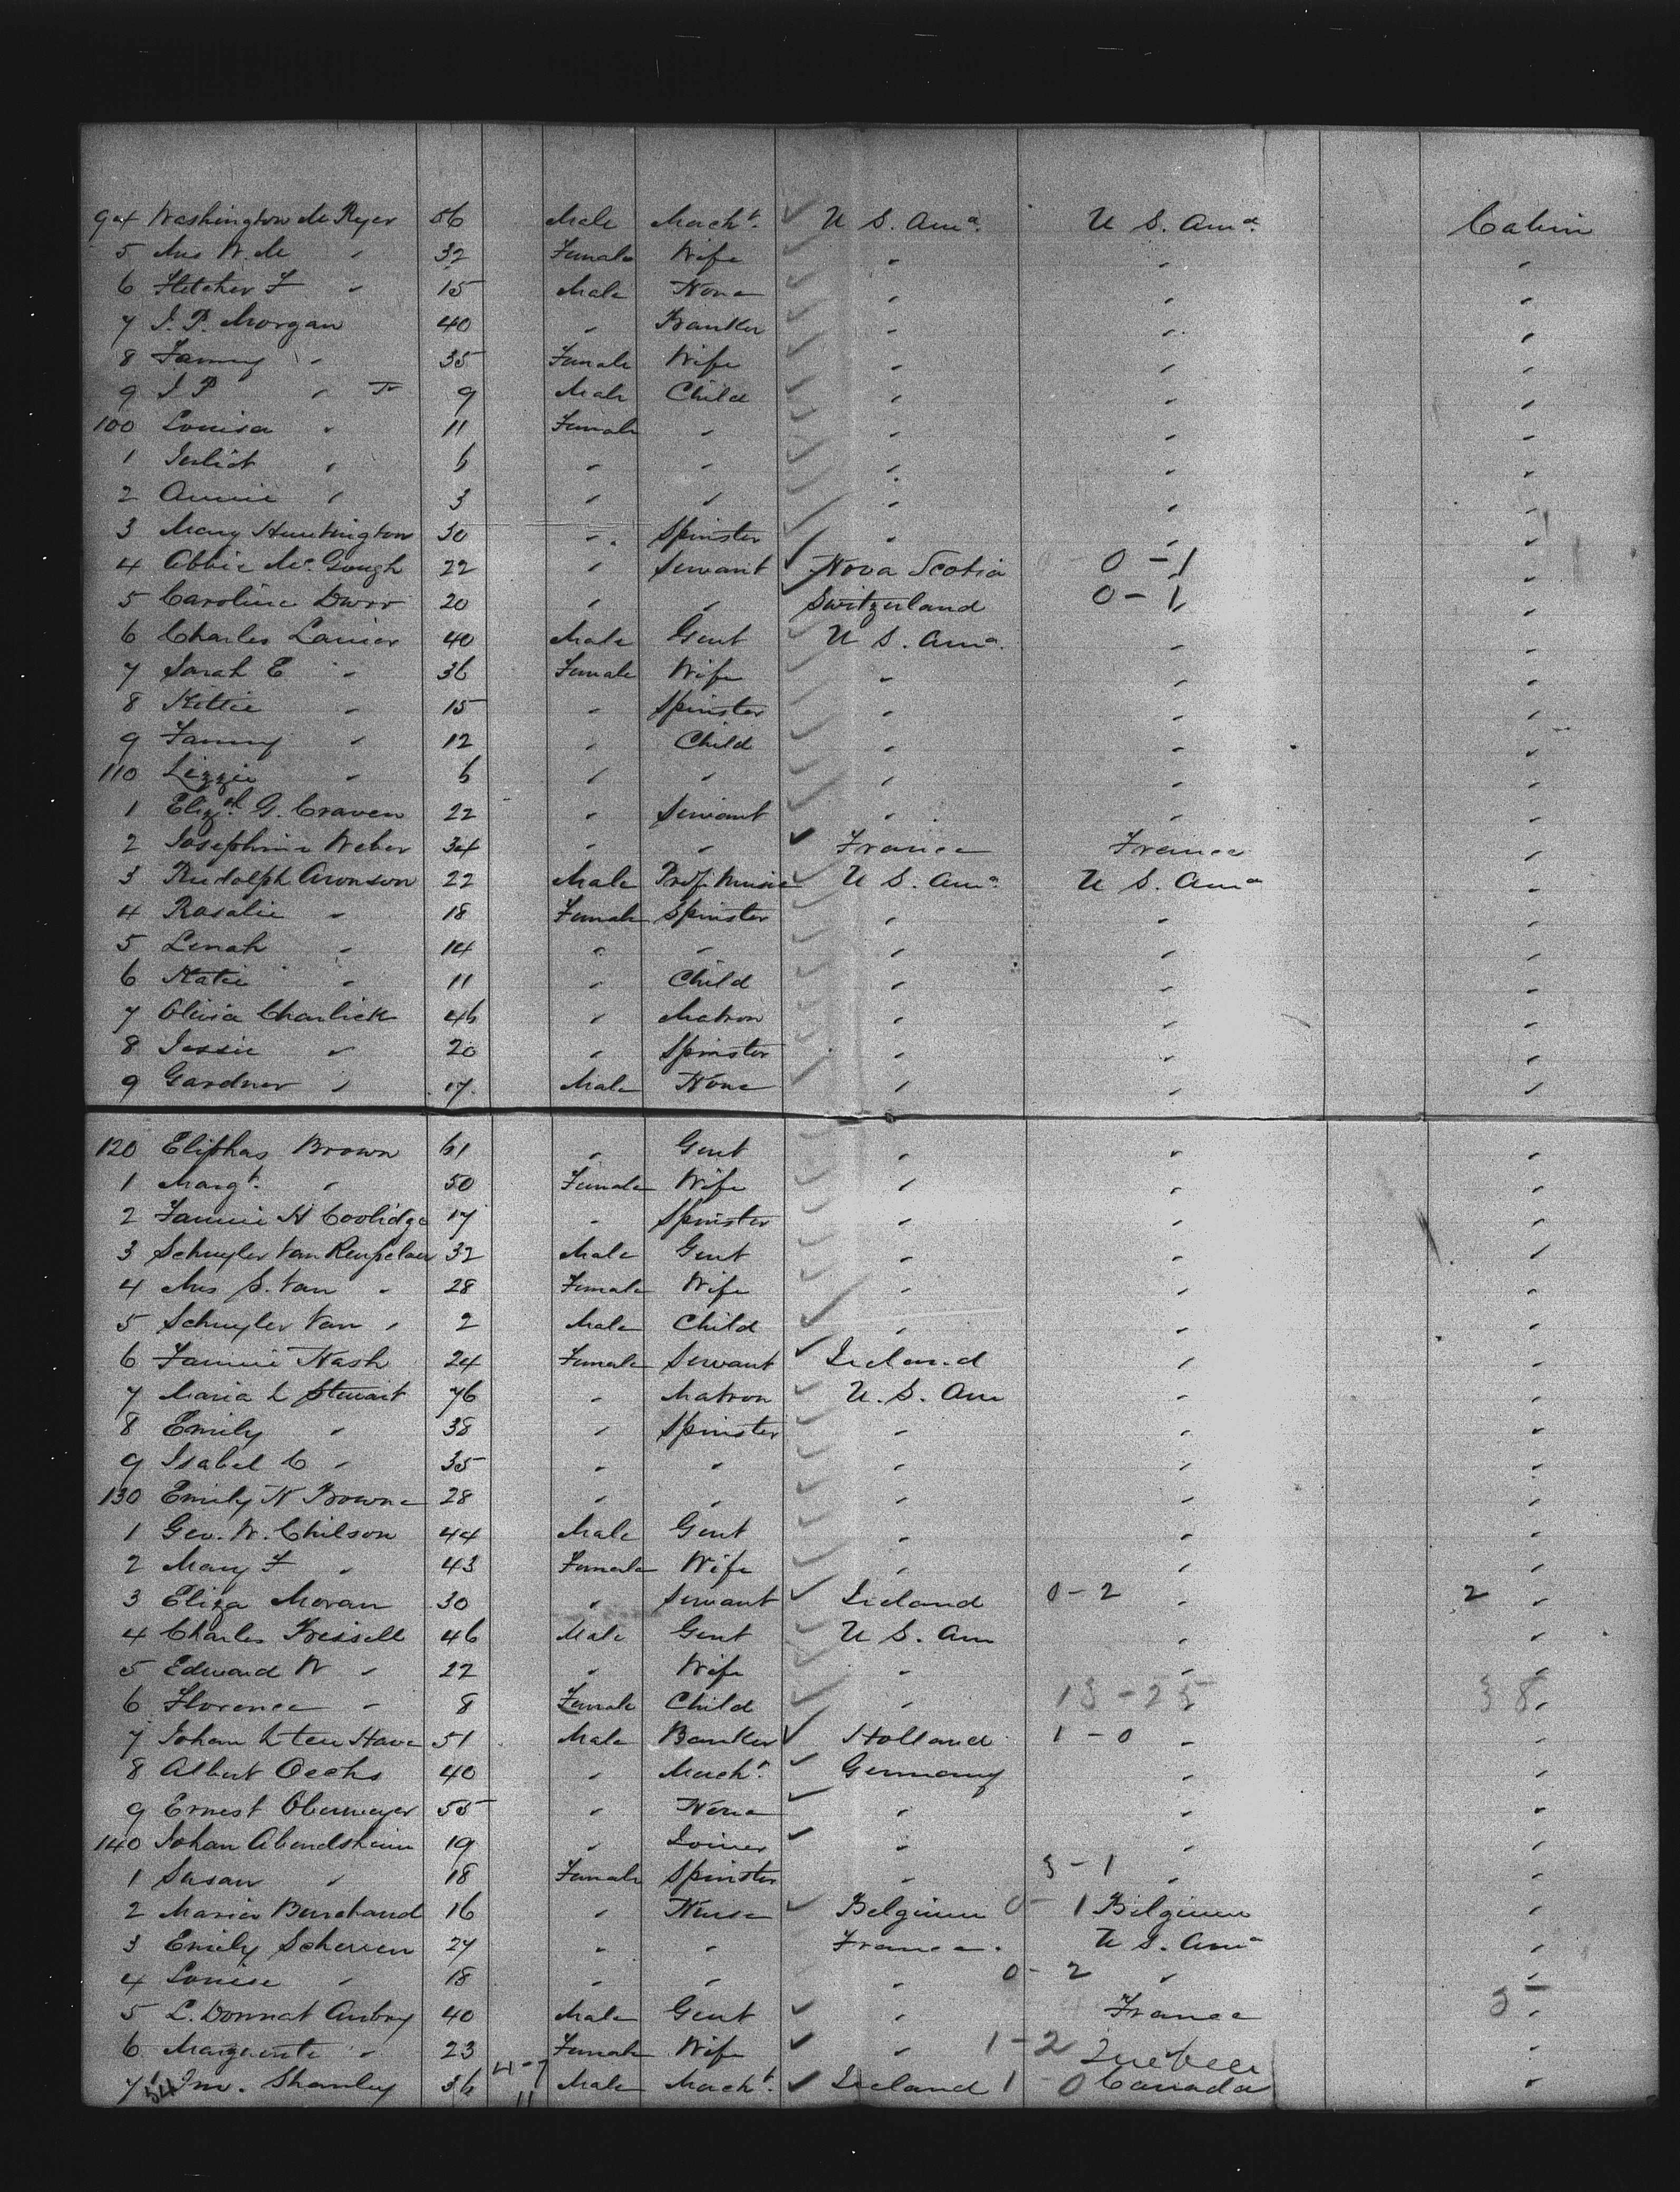 94 Washington De Ryer 56 Male Mercht. U S. Ama. U S. Ama. Cabin
5 Mrs W. De " 32 Female Wife " " "
6 Fletcher F " 15 Male None " " "
7 J. P. Morgan 40 " Banker " " "
8 Fanny " 35 Female Wife " " "
9 J P " Jr 9 Male Child " " "
100 Louisa " 11 Female " " " "
1 Juliet " 6 " " " " "
2 Annie " 3 " " " " "
3 Mary Huntington 30 " Spinster " " "
4 Abbie Mc.Gough 22 " Servant Nova Scotia 0-1 "
5 Caroline Durr 20 " " Switzerland 0-1 "
6 Charles Lanier 40 Male Gent U S. Ama. " "
7 Sarah E " 36 Female Wife " " "
8 Kittie " 15 " Spinster " " "
9 Fanny " 12 " Child " " "
110 Lizzie " 6 " " " " "
1 Elizth. G. Craven 22 " Servant " " "
2 Josephine Weber 34 " " France France "
3 Rudolph Aronson 22 Male Prof. Music U S. Ama. U S. Ama "
4 Rosalie " 18 Female Spinster " " "
5 Lenah " 14 " " " " "
6 Katie " 11 " Child " " "
7 Olivia Charlick 46 " Matron " " "
8 Jessie " 20 " Spinster " " "
9 Gardner " 17. Male None " " "
120 Eliphas Brown 61 " Gent " " "
1 Margt. " 50 Female Wife " " "
2 Fannie H Coolidge 17 " Spinster " " "
3 Schuyler Van Renselaer 32 Male Gent " " "
4 Mrs S. Van " 28 Female Wife " " "
5 Schuyler Van " 2 Male Child " " "
6 Fannie Nash 24 Female Servant Ireland " "
7 Maria L Stewart 76 " Matron U. S. Am " "
8 Emily " 38 " Spinster " " "
9 Isabel C " 35 " " " " "
130 Emily N Browne 28 " " " " "
1 Geo. W. Chilson 44 Male Gent " " "
2 Mary F " 43 Female Wife " " "
3 Eliza Moran 30 " Servant Ireland 0-2 " 2 "
4 Charles Frissell 46 Male Gent U S. Am " "
5 Edward W " 22 " Wife " " "
6 Florence " 8 Female Child " 13-25 " 38 "
7 Johan L ten Have 51 Male Banker Holland 1-0 " "
8 Albert Oechs 40 " Mercht. Germany " "
9 Ernest Obermeyer 55 " None " " "
140 Johan Abendsheim 19 " Joiner " " "
1 Susan " 18 Female Spinster " 3-1 " "
2 Maria Burchaud 16 " Nurse Belgium 0-1 Belgium "
3 Emily 27 " " France. U S. Ama "
4 Louise " 18 " " " 0-2 " "
5 L. Donnat Aubry 40 Male Gent " France 3 "
6 Marguerite " 23 Female Wife " 1-2 "
7 Jm. Shanley 36 4-7 11 Male Mercht. Ireland 1-0 Quebec Canada "
54